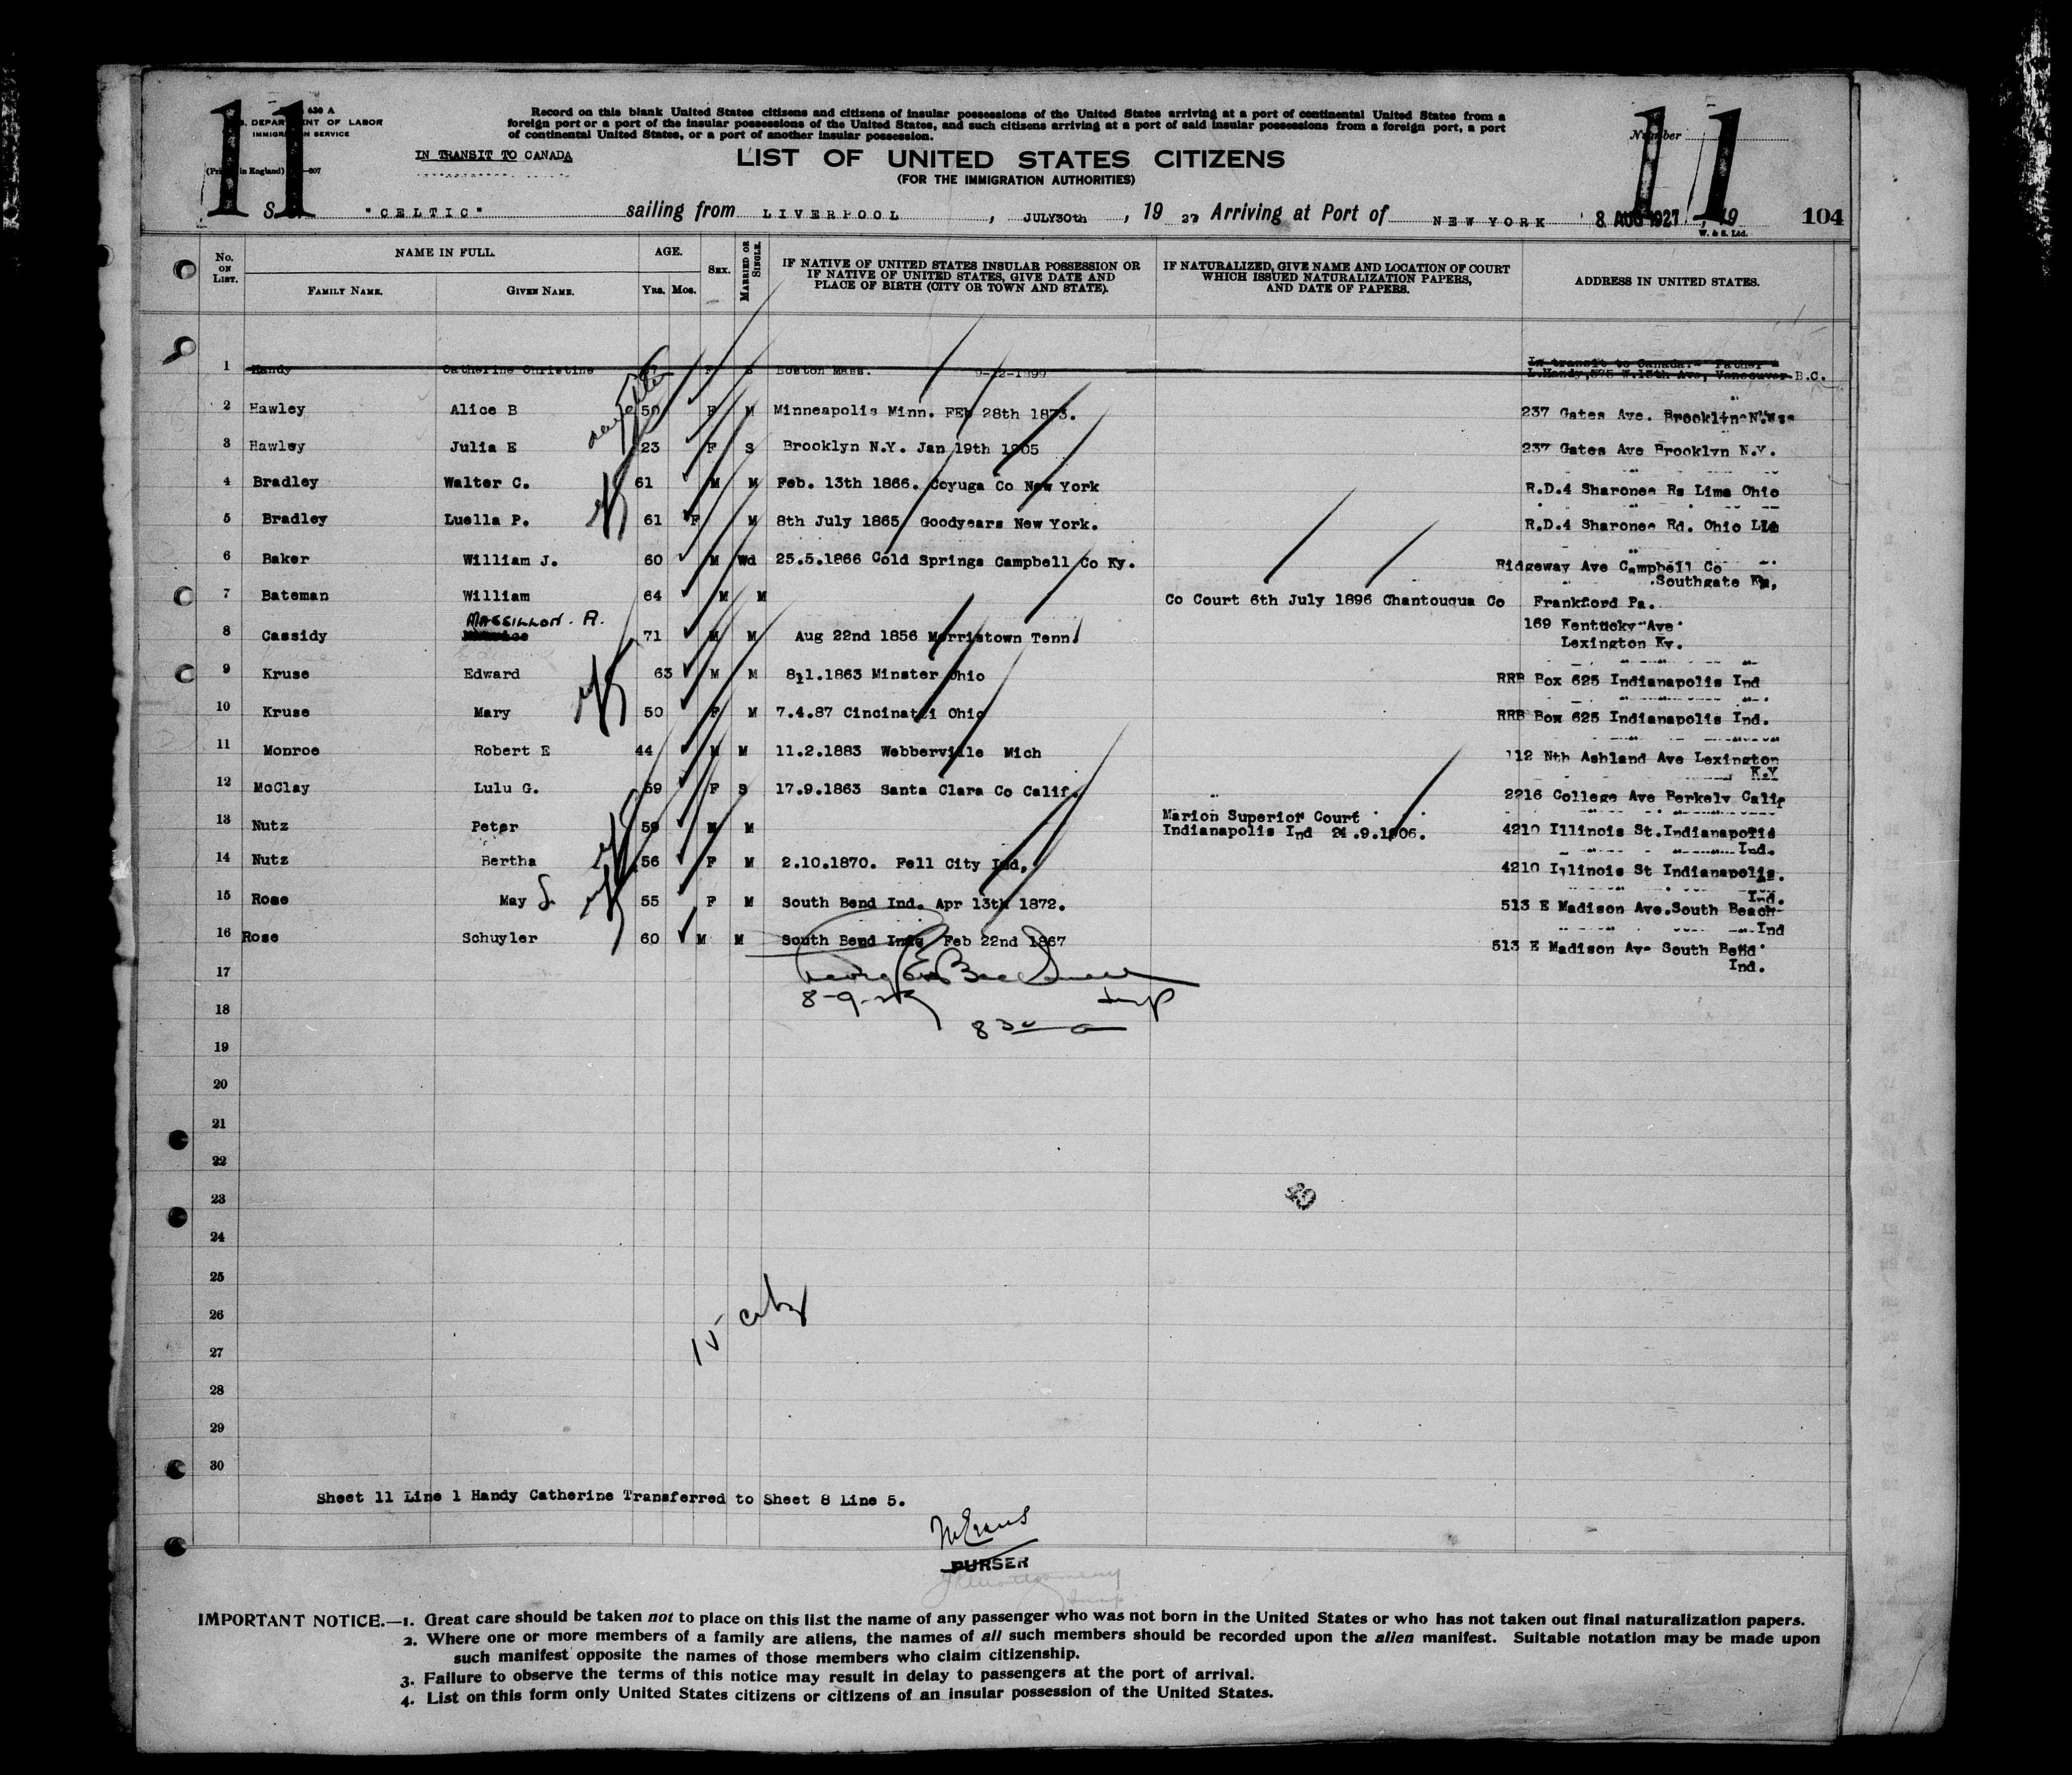 11
630 A
DEPARTMENT OF LABOR
IMMIGRATION SERVICE
Record on this blank United States citizens and citizens of insular possessions of the United States arriving at a port of continental United States from a
foreign port or a port of the insular possessions of the United States, and such citizens arriving at a port of said insular possessions from a foreign port, a port
of continental United States, or a port of another insular possession.
Number
11
IN TRANSIT TO CANADA
LIST OF UNITED STATES CITIZENS
(FOR THE IMMIGRATION AUTHORITIES)
S. "CELTIC" sailing from LIVERPOOL, JULY30th, 19 27 Arriving at Port of NEW YORK 8 AUG 1927, 19 104
W. & S. Ltd.
No. ON LIST. NAME IN FULL. AGE. SEX. MARRIED OR SINGLE. IF NATIVE OF UNITED STATES INSULAR POSSESSION OR IF NATIVE OF UNITED STATES, GIVE DATE AND PLACE OF BIRTH (CITY OR TOWN AND STATE). IF NATURALIZED, GIVE NAME AND LOCATION OF COURT WHICH ISSUED NATURALIZATION PAPERS, AND DATE OF PAPERS. ADDRESS IN UNITED STATES.
FAMILY NAME. GIVEN NAME. YRS. MOS.
In transit to Canada.- Father
1 Handy Catherine Christine F S Boston Mass. L.Handy, W.15th Ave, Vancouver B.C.
2 Hawley Alice B 50 F M Minneapolis Minn. FEb 28th 1873. 237 Gates Ave. Brooklyn
3 Hawley Julia E 23 F S Brooklyn N.Y. Jan 19th 1905 237 Gates Ave Brooklyn N.Y.
4 Bradley Walter C. 61 M M Feb. 13th 1866. Coyuga Co New York R.D.4 Sharonee Rs Lima Ohio
5 Bradley Luella P. 61 F M 8th July 1865 Goodyears New York. R.D.4 Sharonee Rd. Ohio
6 Baker William J. 60 M Wd 25.5.1866 Cold Springs Campbell Co Ky. Ridgeway Ave Campbell Co
Southgate
7 Bateman William 64 M M Co Court 6th July 1896 Chantouqua Co Frankford Pa.
MASSILLON. A.
8 Cassidy 71 M M Aug 22nd 1856 Morristown Tenn. 169 Kentucky Ave
Lexington Ky.
9 Kruse Edward 63 M M 8.1.1863 Minster Ohio RRB Box 625 Indianapolis Ind
10 Kruse Mary 50 F M 7.4.87 Cincinatti Ohio RRB Box 625 Indianapolis Ind.
11 Monroe Robert E 44 M M 11.2.1883 Webberville Mich 112 Nth Ashland Ave Lexington
K.Y
12 McClay Lulu G. 59 F S 17.9.1863 Santa Clara Co Calif. 2216 College Ave Berkely Calif
13 Nutz Peter 59 M M Marion Superior Court
Indianapolis Ind 24.9.1906. 4210 Illinois St.Indianapolis
Ind.
14 Nutz Bertha 56 F M 2.10.1870. Fell City Ind, 4210 Illinois St Indianapolis.
Ind.
15 Rose May S. 55 F M South Bend Ind. Apr 13th 1872. 513 E Madison Ave.South Beach
Ind
16 Rose Schuyler 60 M M South Bend Feb 22nd 1867 513 E Madison Av South Bend
Ind.
17
8-9-27 Insp
18
8 30 a
19
20
21
22
23
49
24
25
26
15 city
27
28
29
30
Sheet 11 Line 1 Handy Catherine Transferred to Sheet 8 Line 5.
PURSER
IMPORTANT NOTICE.—1. Great care should be taken not to place on this list the name of any passenger who was not born in the United States or who has not taken out final naturalization papers.
2. Where one or more members of a family are aliens, the names of all such members should be recorded upon the alien manifest. Suitable notation may be made upon
such manifest opposite the names of those members who claim citizenship.
3. Failure to observe the terms of this notice may result in delay to passengers at the port of arrival.
4. List on this form only United States citizens or citizens of an insular possession of the United States.